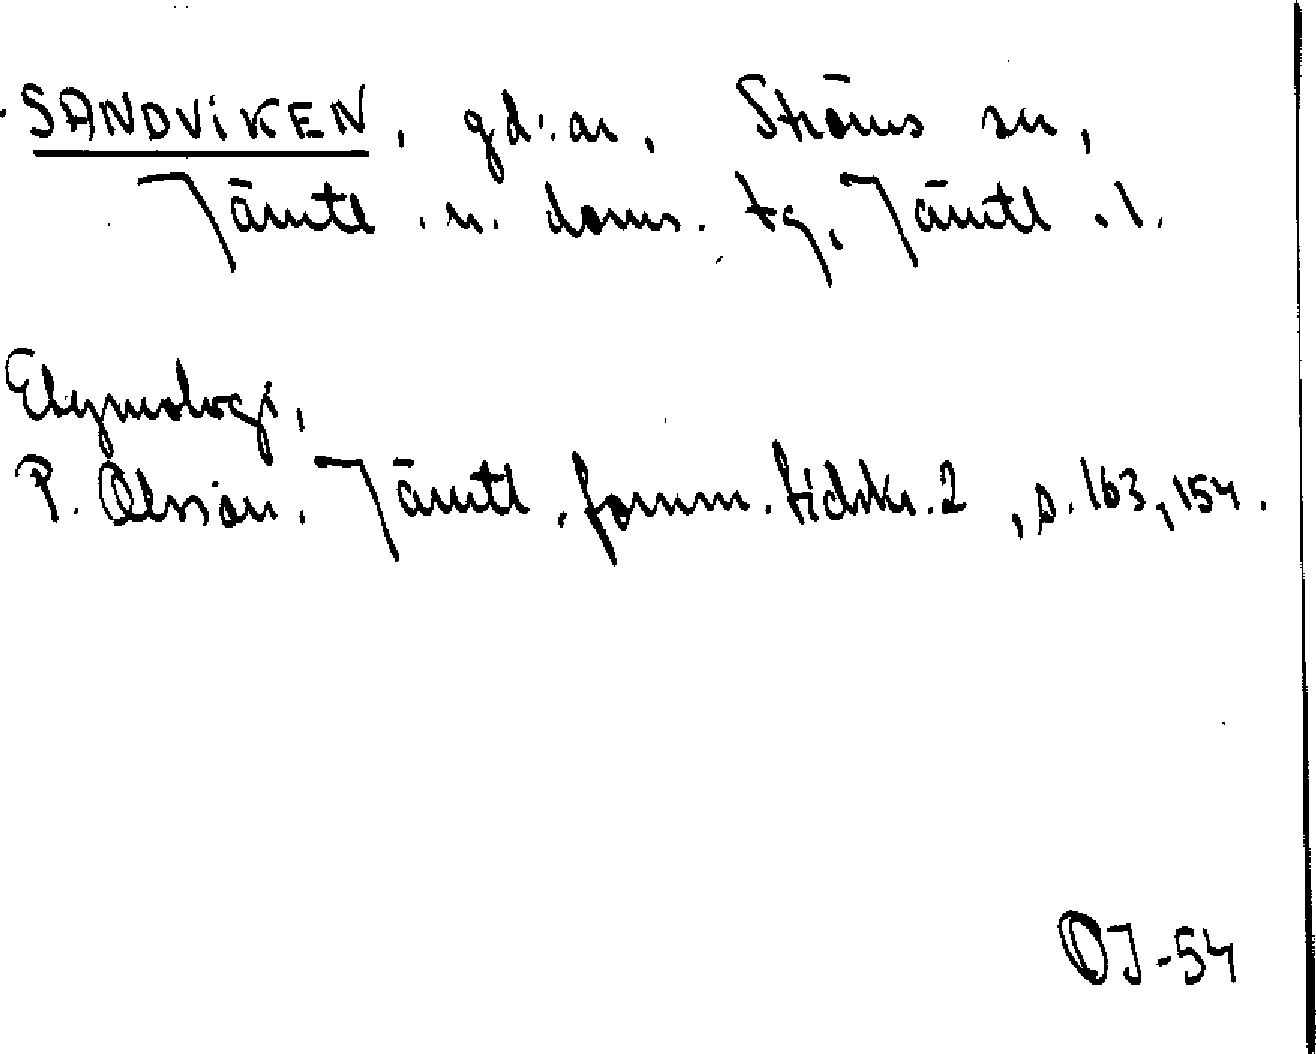 SANDVIKEN, gd:ar, Ströms sn,
Jämtl. n. doms. tg, Jämtl. l.
Etymologi,
P. Olsson, Jämtl. fornm. tidskr. 2, s. 163, 154.
OJ-54